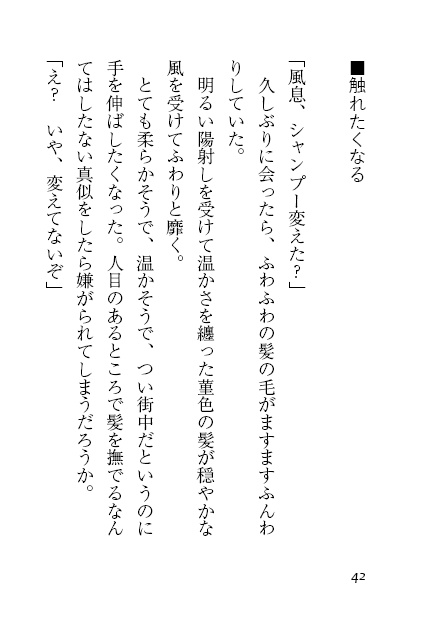 ■触れたくなる
「風息、シャンプー変えた？」
　久しぶりに会ったら、ふわふわの髪の毛がますますふんわ
りしていた。
　明るい陽射しを受けて温かさを纏った菫色の髪が穏やかな
風を受けてふわりと靡く。
　とても柔らかそうで、温かそうで、つい街中だというのに
手を伸ばしたくなった。人目のあるところで髪を撫でるなん
てはしたない真似をしたら嫌がられてしまうだろうか。
「え？　いや、変えてないぞ」
42